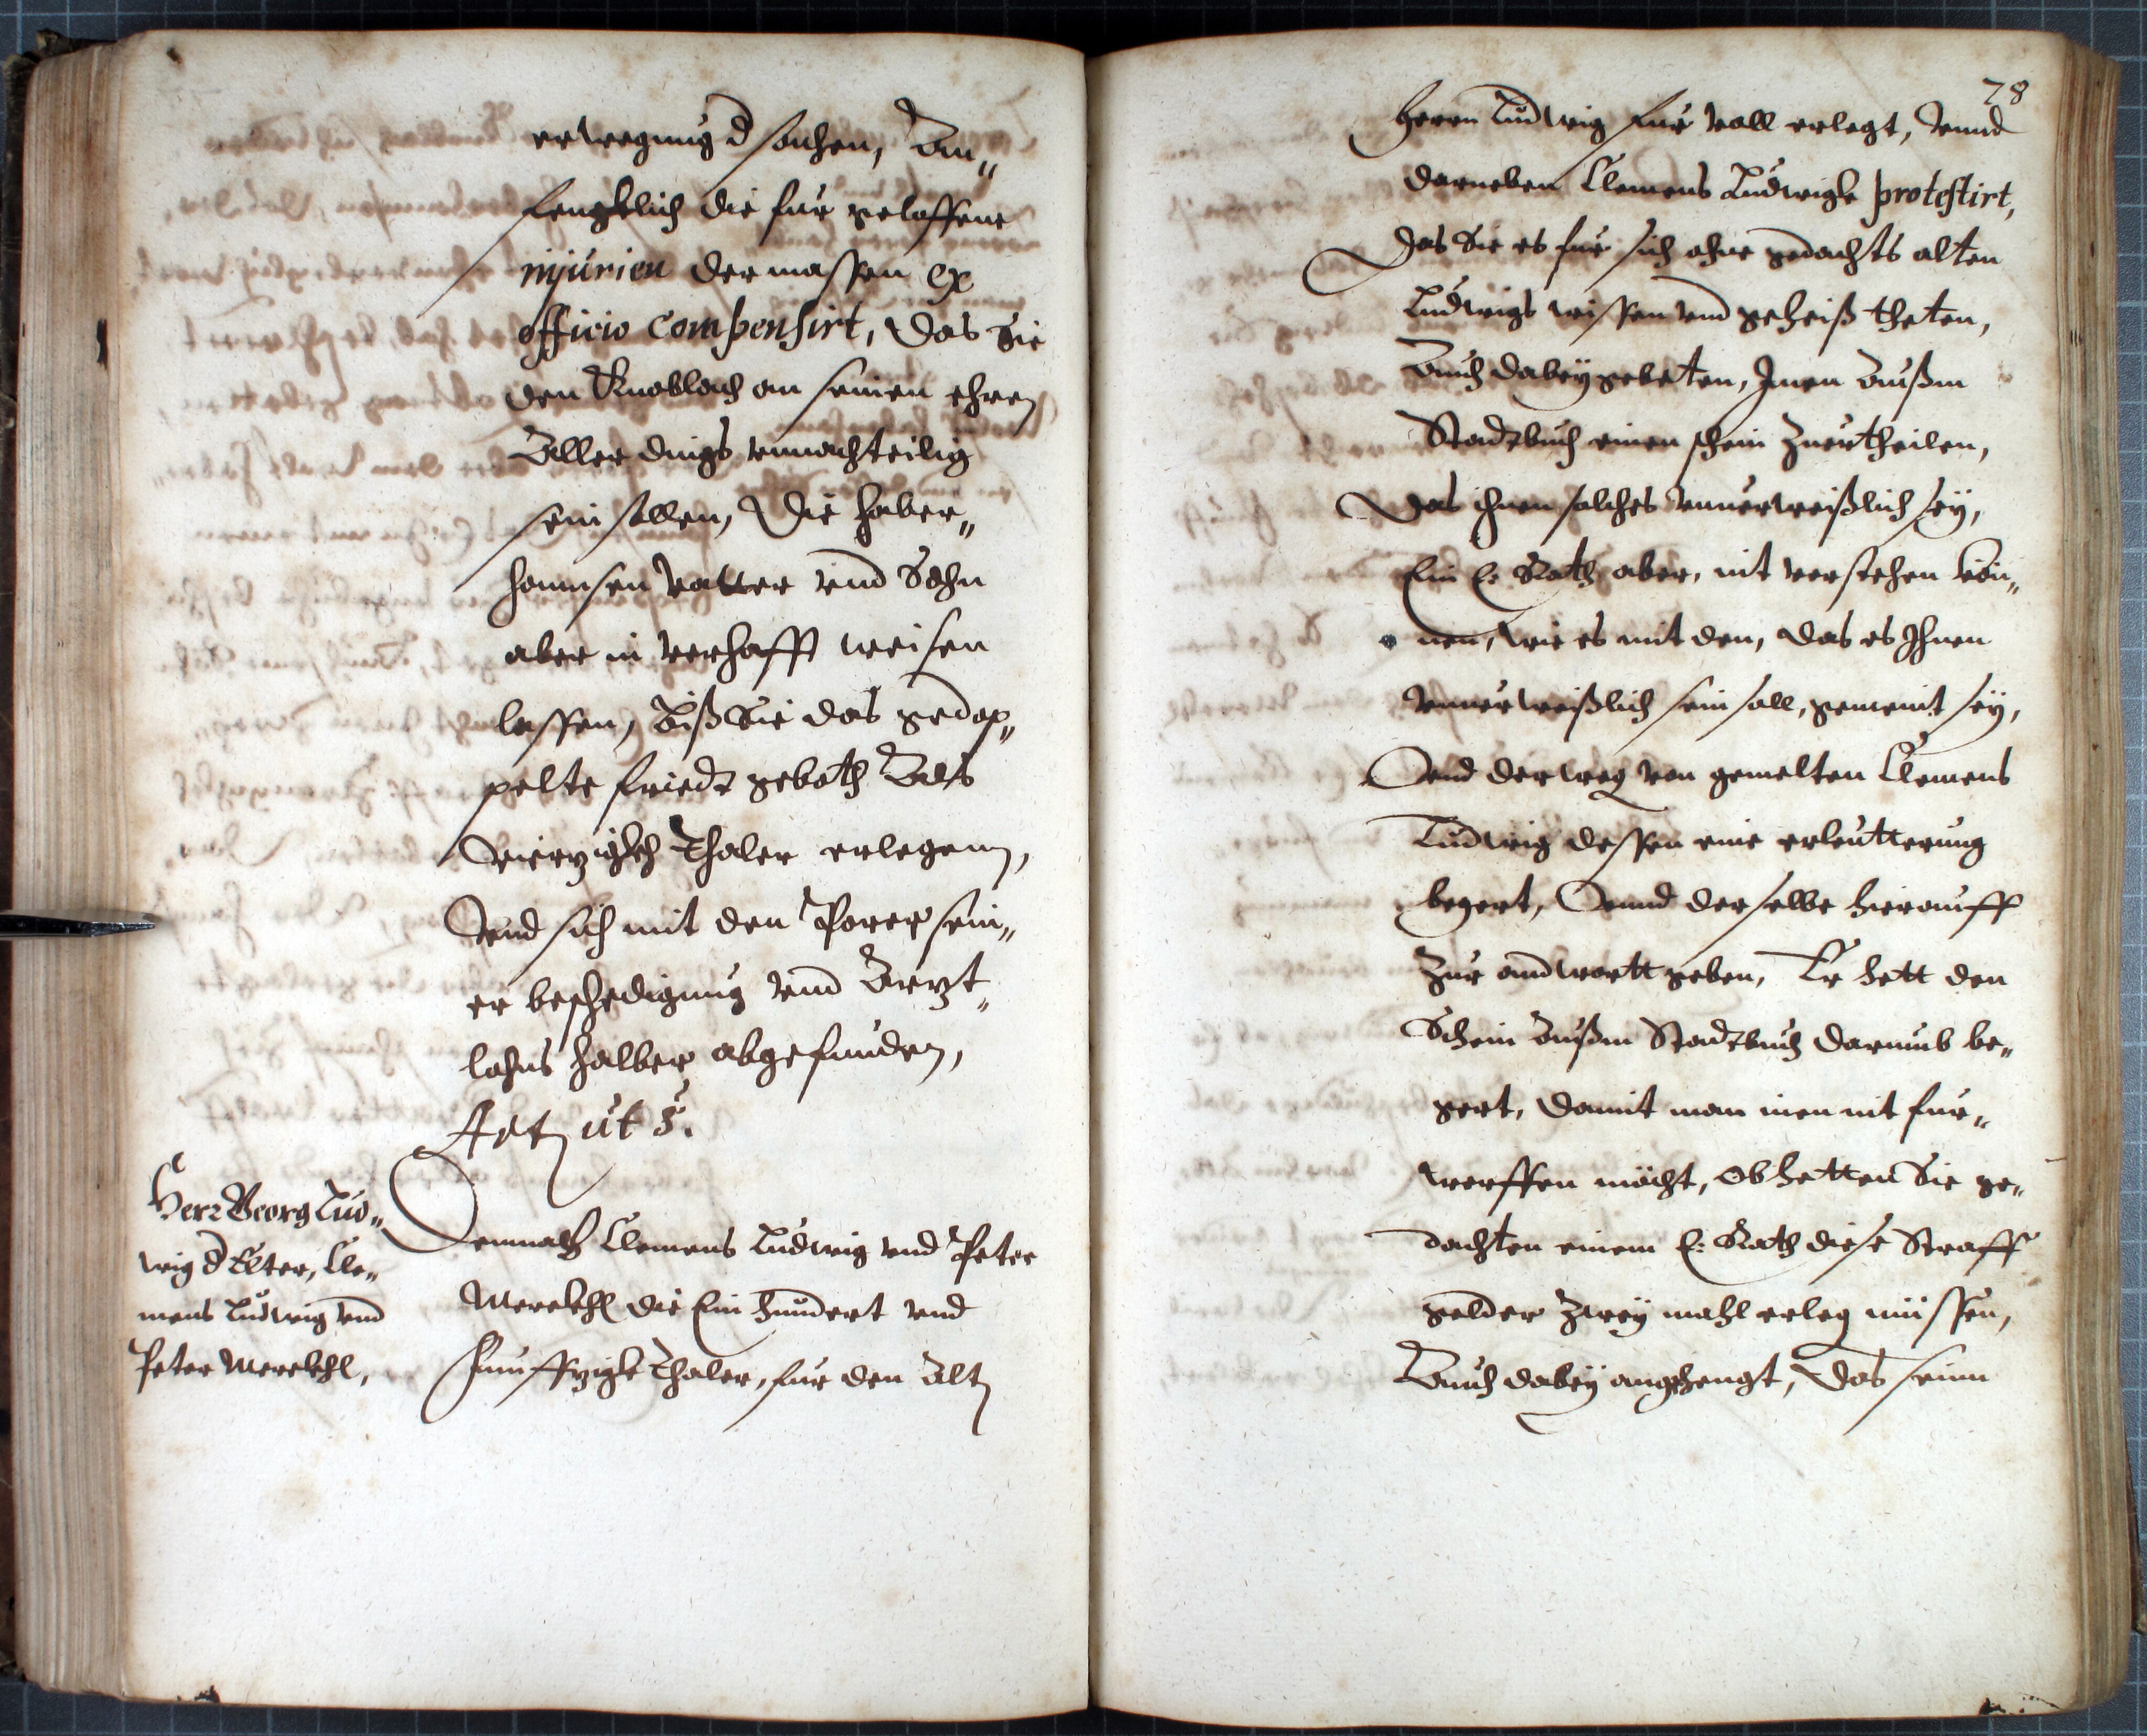 erwegung d sachen, An„
fengklich die fur geloffene
injurien dermassen ex
officio compensirt, das Sie
den Knobloch an seinen ehren
Aller dings unnachteilig
sein sollen, Die Haber„
hannsen vatter und Sohn
aber in verhafft weisen
lassen, Biß Sie das gedop„
pelte friedt geboth Als
Viertzigkh Thaler erlegenn,
Und sich mit den Porer sein„
er beschedigung und Artzt„
lohns halber abgefunden,
Act ut s.
Herr Georg Lud„
wig d Elter, Cle„
mens Ludwig und
Peter Merckhl,
Demnach Clemens Ludwig und Peter
Merckhl die Ein hundert und
funfftzigk Thaler, fur den Alten
78
Herrn Ludwig fur voll erlegt, Unnd
darneben Clemens Ludwigk protestirt,
Das Sie es fur sich ohne gedachts alten
Ludwigs wissen und geheiß theten,
Auch dabey gebeten, Inen Außm
Stadtbuch einen schein zuertheilen,
Das ihnen solches unverweißlich sey,
Ein E: Rath aber, nit verstehen kön„
nen, wie es mit den, das es Ihnen
unverweißlich sein soll, gemeint sey,
Und derweg von gemelten Clemens
Ludwig dessen eine erleutterung
begert, Unnd derselbe hierauff
Zur andwortt geben, Er hett den
Schein Außm Stadtbuch darumb be„
gert, damit man inen nit fur„
werffen möcht, ob hetten Sie ge„
dachten einem E: Rath diese Straff
gelder zwey mahl erleg müssen,
Auch dabey angehengt, Das seinn